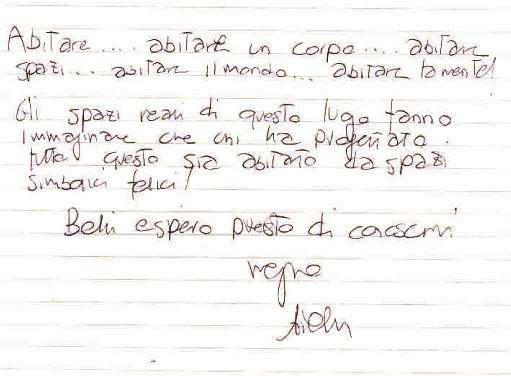 Abitare.... abitare un corpo.... abitare
spazi... abitare il mondo... abitare la mente!
Gli spazi reali di questo lugo fanno
immaginare che chi ha progettato
tutto questo sia abitato da spazi
simbolici felici!
Beh espero questo di